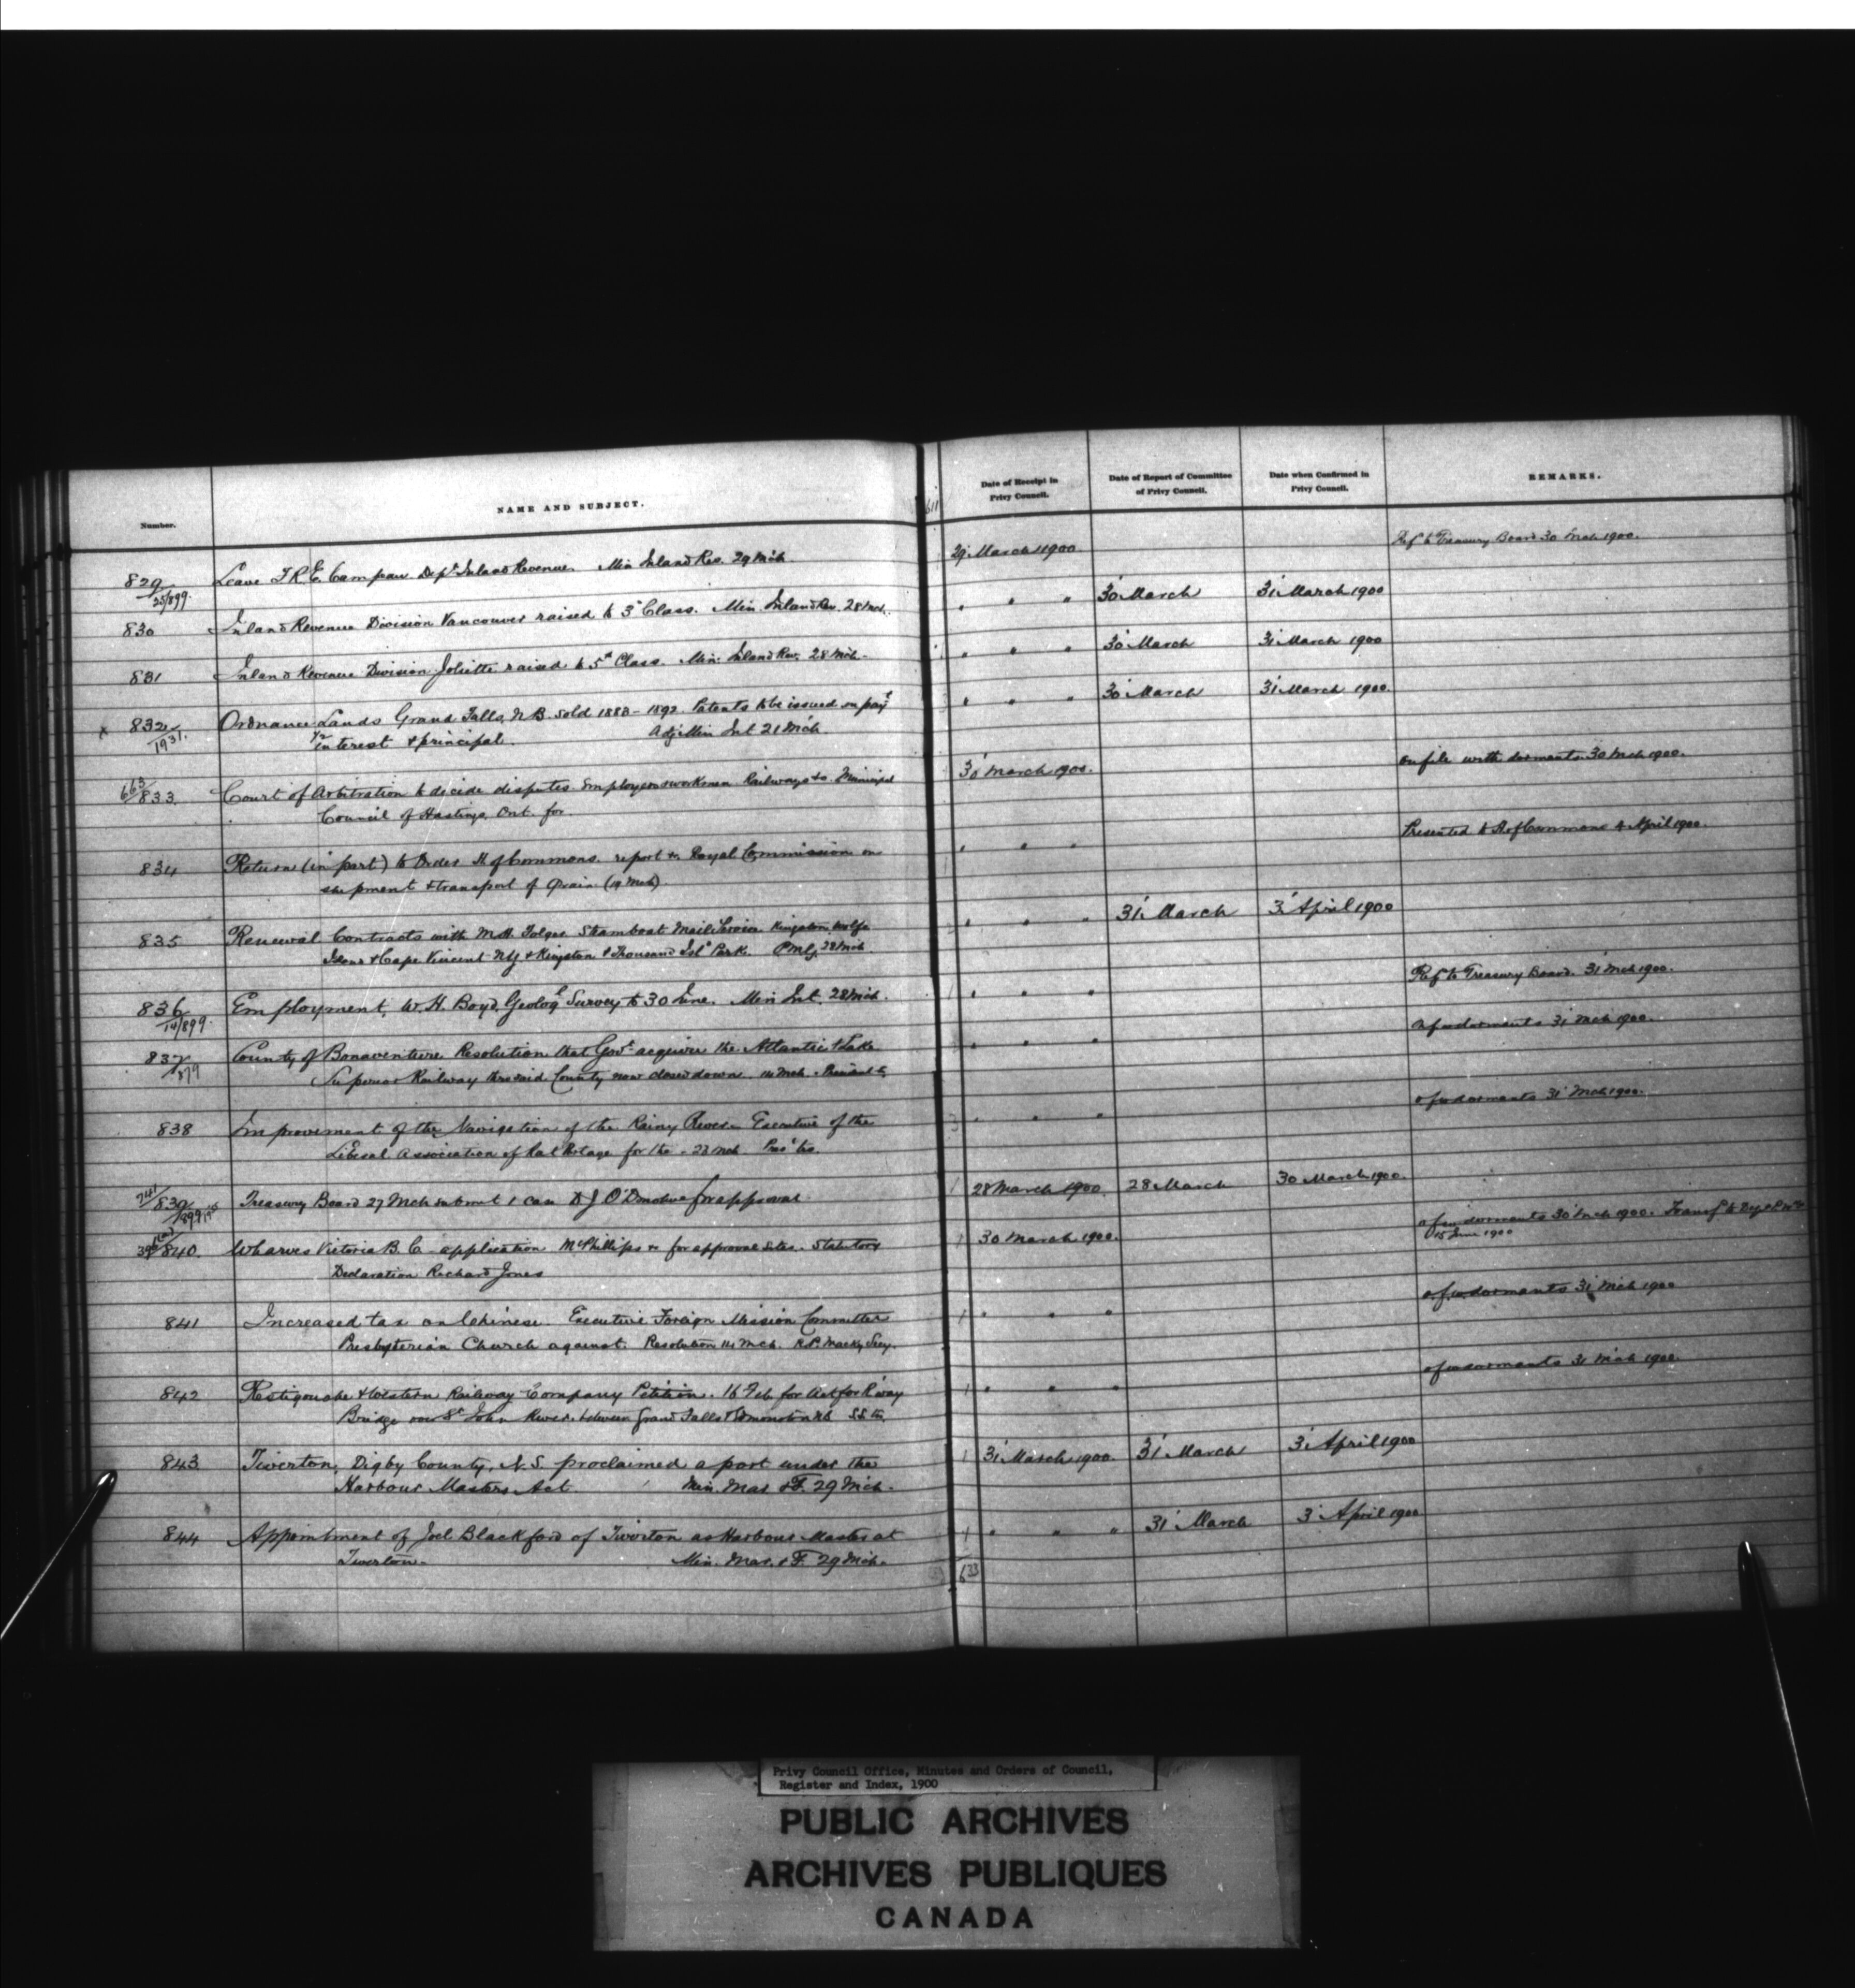 Number.
NAME AND SUBJECT.
611
Date of Receipt in
Privy Council.
Date of Report of Committee
of Privy Council.
Date when Confirmed in
Privy Council.
REMARKS.
829 25/899. Leave F.R.E. Campeau Dept Inland Revenue. Min Inland Rev. 29 Mch. 29 March 1900. Ref to Treasury Board 30 Mch 1900.
830 Inland Revenue Division Vancouver raised to 3d Class. Min. Inland Rev. 28 Mch. " " " 30 March 31 March 1900
831 Inland Revenue Division Joliette raised to 5th Class. Min. Inland Rev. 28 Mch. " " " 30 March 31 March 1900
x 832 1931. Ordnance Lands Grand Falls, N.B. sold 1883-1892. Patents to be issued on payt " " " 30 March 31 March 1900.
1/2 interest & principal. Adj: Min Int 21 Mch.
663/833. Court of Arbitration to decide disputes. Employers & workmen Railways &c. Municipal 30 March 1900. on file with dormants 30 Mch 1900.
Council of Hastings, Ont. for.
834 Return (in part) to Order H of Commons. report &c Royal Commission on " " " Presented to H of Commons 4 April 1900.
shipment & transport of Grain (19 Mch).
835 Renewal Contracts with M.H. Folger Steamboat Mail Service Kingston, Wolfe " " " 31 March 3 April 1900
Island & Cape Vincent N.Y. & Kingston & Thousand Isld Park. PMG 28 Mch.
836 14/899. Employment, W.H. Boyd, Geologl Survey to 30 June. Min Int. 28 Mch. " " " Ref to Treasury Board. 31 Mch 1900.
837 County of Bonaventure Resolution that Govt acquire the Atlantic & Lake " " " of w dormants 31 Mch 1900.
Superior Railway thro said County now closed down. 14 Mch.
838 Improvement of the Navigation of the Rainy River. Executive of the " " " of w dormants 31 Mch 1900.
Liberal Association of Rat Portage for the - 23 Mch
741/839 Treasury Board 27 Mch submit 1 case D J O'Donahue for approval. 28 March 1900. 28 March 30 March 1900.
840. Wharves Victoria B.C. application McPhillips &c for approval sites. Statutory 30 March 1900. of w dormants 30 Mch 1900.
15 June 1900
Declaration Richard Jones
841 Increased tax on Chinese. Executive Foreign Mission Committee " " " of w dormants 31 Mch 1900
Presbyterian Church against. Resolution 14 Mch. R.P. Mackay Secy.
842 Restigouche & Western Railway Company Petition. 16 Feb for Act for R'way " " " of w dormants 31 Mch 1900.
Bridge over St John River between Grand Falls & Edmonston NB
843 Tiverton, Digby County, N.S. proclaimed a port under the 31 March 1900. 31 March 3 April 1900
Harbour Masters Act. Min. Mar. & F. 29 Mch.
844 Appointment of Joel Blackford of Tiverton as Harbour Master at " " " 31 March 3 April 1900
Tiverton. Min. Mar. & F. 29 Mch.
633
Privy Council Office, Minutes and Orders of Council,
Register and Index, 1900
PUBLIC ARCHIVES
ARCHIVES PUBLIQUES
CANADA